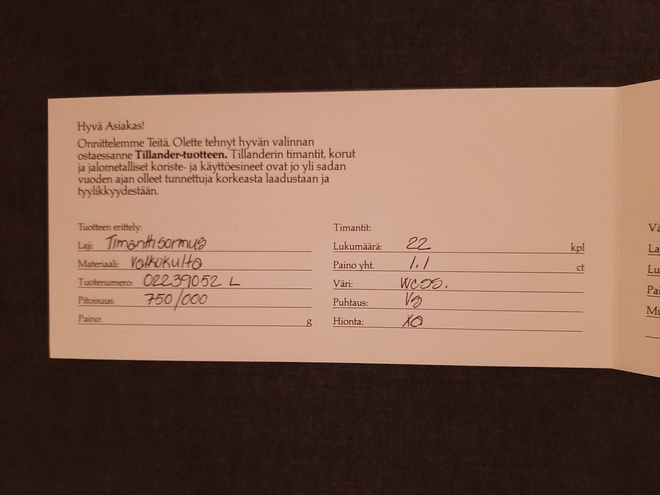 Hyvä Asiakas!
Onnittelemme Teitä. Olette tehnyt hyvän valinnan
ostaessanne Tillander-tuotteen. Tillanderin timantit, korut
ja jalometalliset koriste- ja käyttöesineet ovat jo yli sadan
vuoden ajan olleet tunnettuja korkeasta laadustaan ja
tyylikkyydestään.
Tuotteen erittely:
Laji: Timanttisormus
Materiaali: Valkokulta
Tuotenumero: 02239052 L
Pitoisuus: 750/000
Paino: g
Timantit:
Lukumäärä: 22 kpl
Paino yht. 1.1 ct
Väri:
Puhtaus:
Hionta:
Vä
La
Lu
Pai
Mu